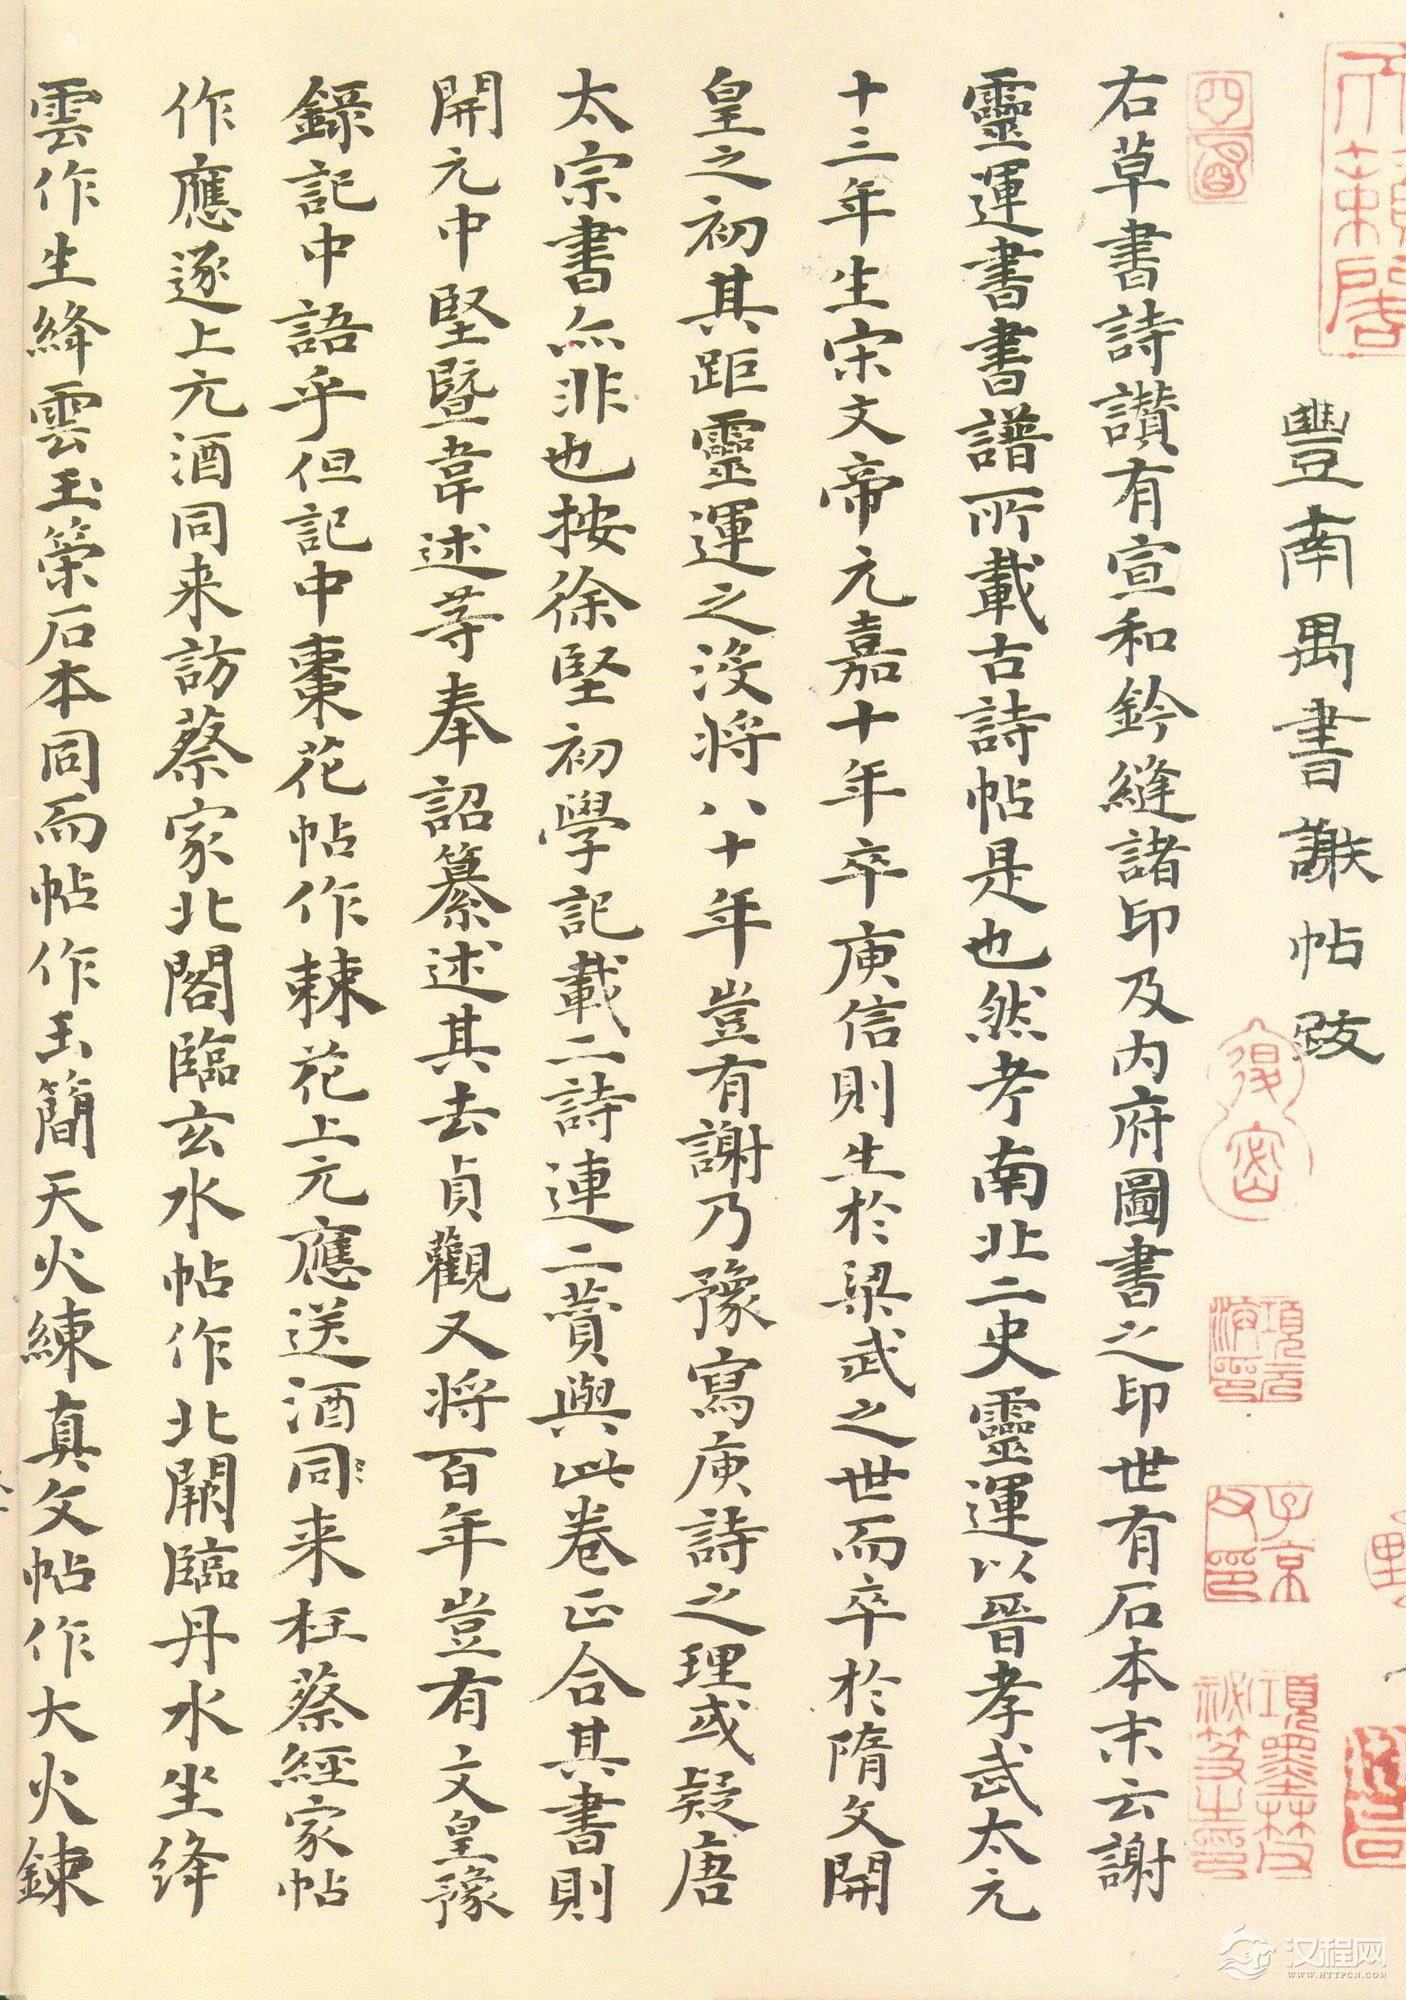 豐南禺書謝帖跋
右草書詩讚有宣和鈐縫諸印及内府圖書之印世有石本末云謝
靈運書書譜所載古詩帖是也然考南北二史靈運以晉孝武太元
十三年生宋文帝元嘉十年卒庾信則生於梁武之世而卒於隋文開
皇之初其距靈運之沒將八十年豈有謝乃豫寫庾詩之理或疑唐
太宗書亦非也按徐堅初學記載二詩連二賛與此卷正合其書則
開元中堅暨韋述等奉詔纂述其去貞觀又將百年豈有文皇豫
錄記中語乎但記中棗花帖作棘花上元應送酒同来枉蔡經家帖
作應逐上元酒同来訪蔡家北閣臨玄水帖作北闕臨丹水坐絳
雲作生絳雲玉策石本同而帖作玉簡天火練真文帖作大火鍊
天籟閣
項元汴印
子京父印
項墨林父祕笈之印
汉程网
WWW.HTTPCN.COM